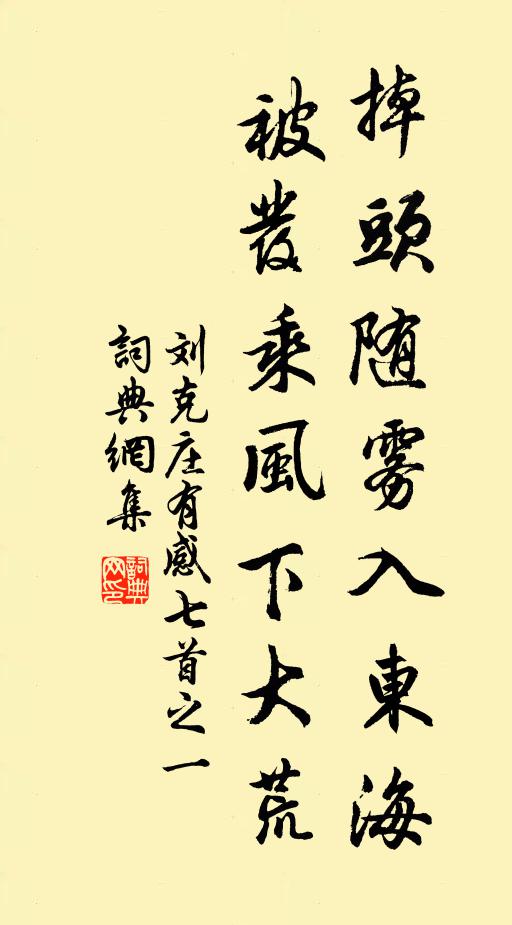 掉頭随雾入東海
被發乘風下大荒
刘克庄有感七首之一
詞典網集
詞典网印